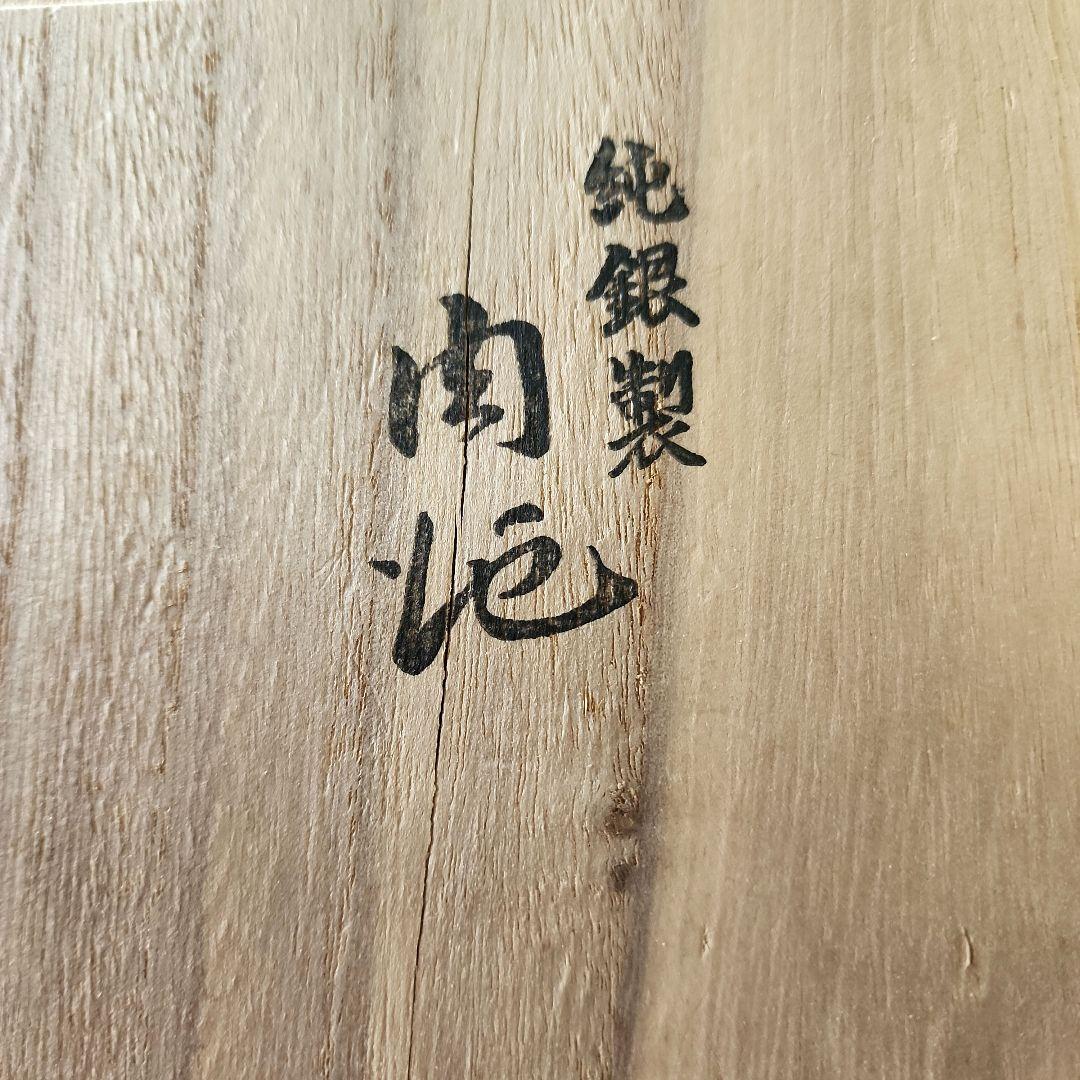 純銀製
肉池